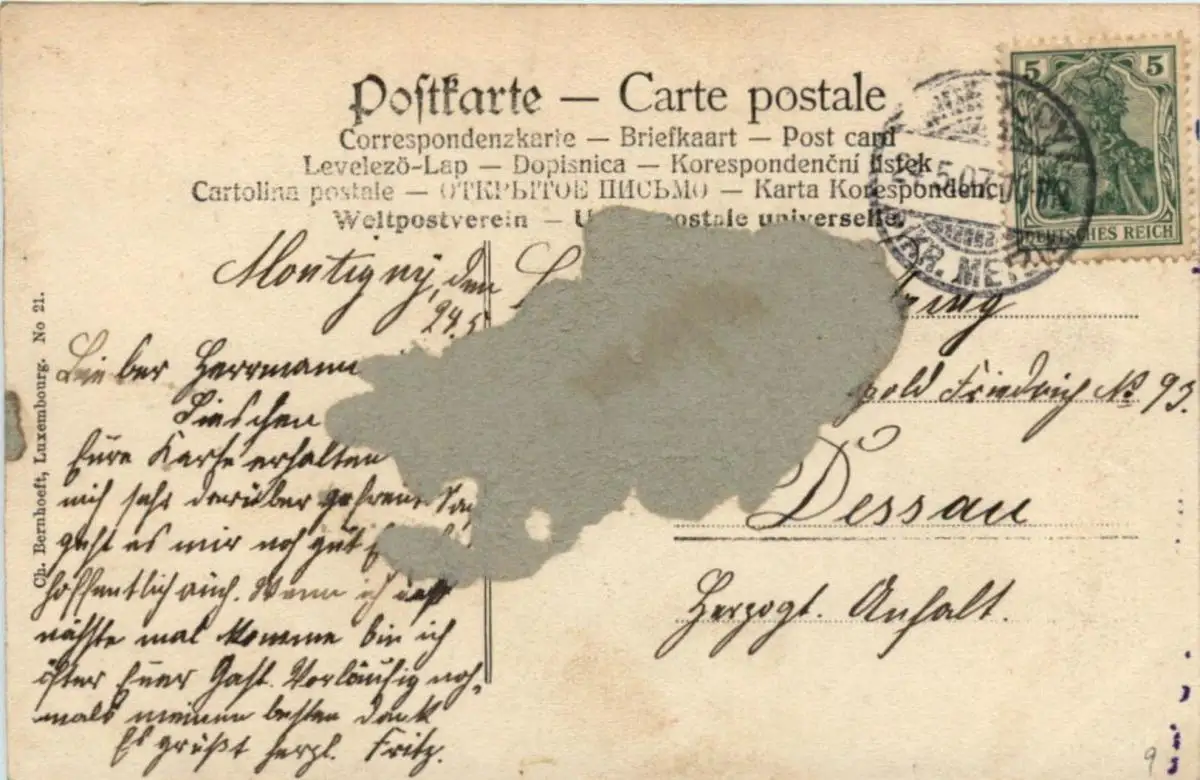 Postkarte — Carte postale
Correspondenzkarte — Briefkaart — Post card
Levelező-Lap — Dopisnica — Korespondenční lístek
Cartolina postale — ОТКРЫТОЕ ПИСЬМО — Karta Korespondenc
Weltpostverein — U postale universelle.
5 5
DEUTSCHES REICH
5.07
KR. MET
Montigny, den
24.5
Lieber Herrmann
Lieschen
Eure Karte erhalten
mich sehr darüber gefreut
geht es mir noch gut
hoffentlich auch. Wenn ich das
nächste mal komme bin ich
öfter Euer Gast. Vorläufig noch-
mals meinen besten Dank
Es grüßt herzl. Fritz.
pold Friedrich No 93.
Dessau
Herzogt. Anhalt.
Ch. Bernhoeft, Luxembourg. No 21.
9